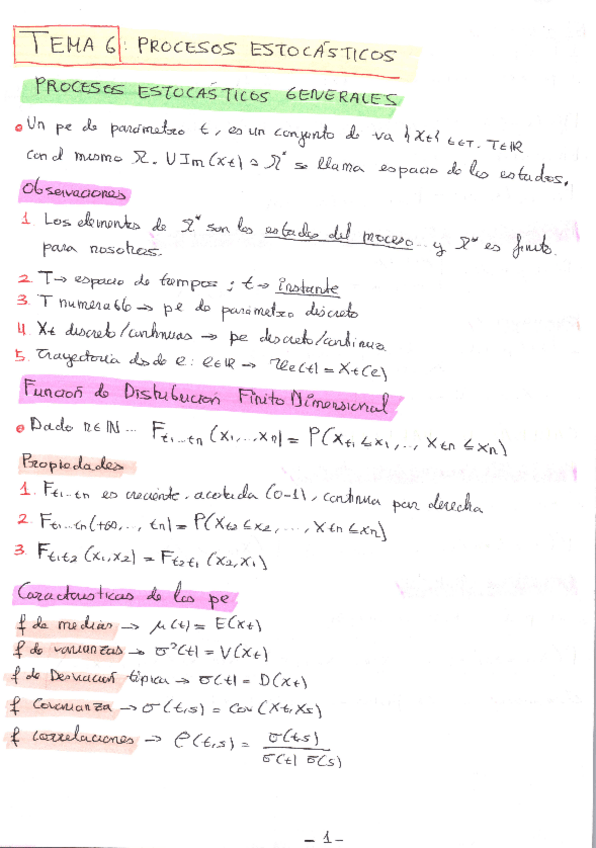 TEMA 6: PROCESOS ESTOCÁSTICOS
PROCESOS ESTOCÁSTICOS GENERALES
Un pe de parámetro t, es un conjunto de va {Xt} t∈T. T∈ℝ
con el mismo Ω. UIm(Xt) = Ω* se llama espacio de los estados.
Observaciones
1. Los elementos de Ω* son los estados del proceso... y Ω* es finito
para nosotros.
2. T → espacio de tiempos ; t → instante
3. T numerable → pe de parámetro discreto
4. Xt discreto/continuas → pe discreto/continuo.
5. Trayectoria desde e: e∈Ω → Xe(t) = Xt(e)
Función de Distribución Finito Dimensional
Dado n∈ℕ... Ft1...tn (x1,...,xn) = P(Xt1 ≤ x1,..., Xtn ≤ xn)
Propiedades
1. Ft1...tn es creciente, acotada (0-1), continua por derecha
2. Ft1...tn(+∞,..., tn) = P(Xt2 ≤ x2, ..., Xtn ≤ xn)
3. Ft1t2 (x1,x2) = Ft2t1 (x2,x1)
Características de los pe
f de medias → μ(t) = E(Xt)
f de varianzas → σ²(t) = V(Xt)
f de Desviación típica → σ(t) = D(Xt)
f Covarianza → σ(t,s) = Cov(Xt,Xs)
f correlaciones → ρ(t,s) = σ(t,s) / σ(t) σ(s)
- 1 -